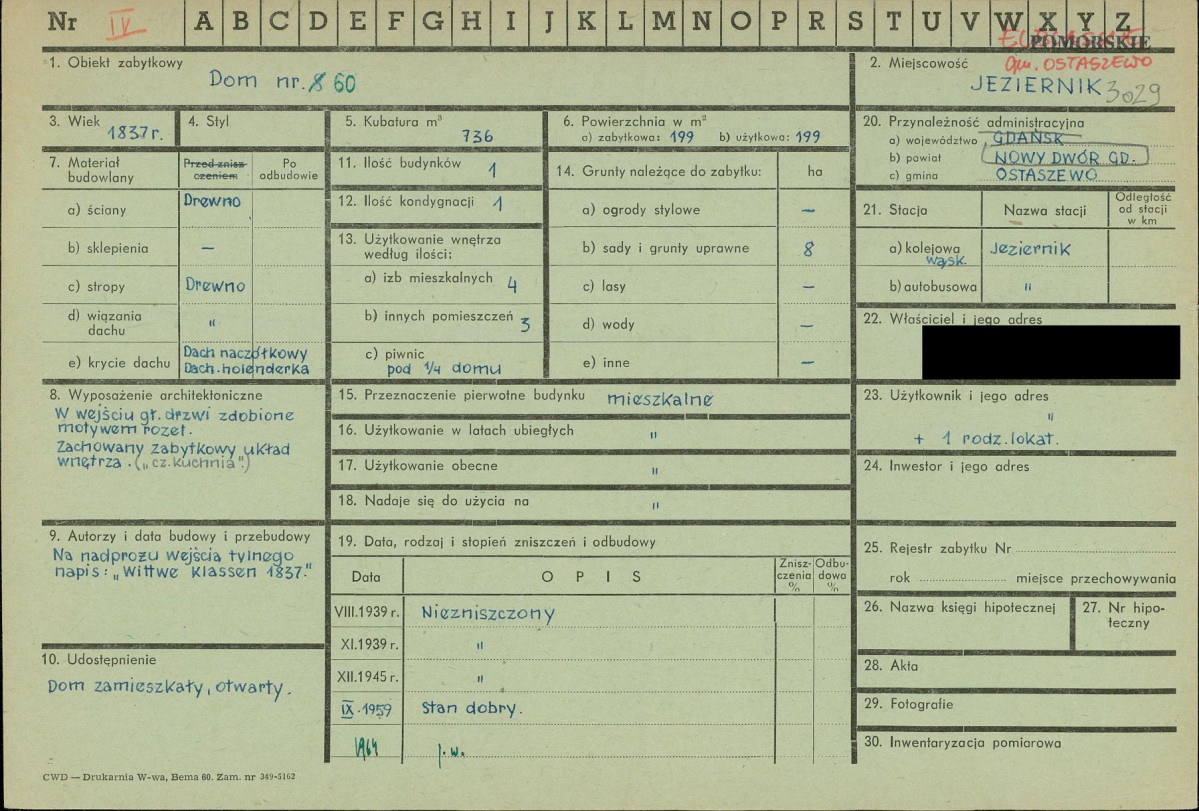 Nr IV A B C D E F G H I J K L M N O P R S T U V W X Y Z
POMORSKIE
1. Obiekt zabytkowy
Dom nr. 8 60
2. Miejscowość
Gm. OSTASZEWO
JEZIERNIK 3029
3. Wiek
1837 r.
4. Styl
5. Kubatura m³
736
6. Powierzchnia w m²
a) zabytkowa: 199 b) użytkowa: 199
20. Przynależność administracyjna
a) województwo GDAŃSK
b) powiat NOWY DWÓR GD.
c) gmina OSTASZEWO
7. Materiał budowlany
Przed znisz-
czeniem
Po
odbudowie
a) ściany Drewno
b) sklepienia —
c) stropy Drewno
d) wiązania
dachu "
e) krycie dachu Dach naczółkowy
Dach.-holenderka
11. Ilość budynków 1
12. Ilość kondygnacji 1
13. Użytkowanie wnętrza
według ilości:
a) izb mieszkalnych 4
b) innych pomieszczeń 3
c) piwnic
pod 1/4 domu
14. Grunty należące do zabytku: ha
a) ogrody stylowe —
b) sady i grunty uprawne 8
c) lasy —
d) wody —
e) inne —
21. Stacja Nazwa stacji
Odległość
od stacji
w km
a) kolejowa Jeziernik
wąsk.
b) autobusowa "
22. Właściciel i jego adres
8. Wyposażenie architektoniczne
W wejściu gł. drzwi zdobione
motywem rozet.
Zachowany zabytkowy układ
wnętrza. („cz. kuchnia".)
15. Przeznaczenie pierwotne budynku mieszkalne
16. Użytkowanie w latach ubiegłych "
17. Użytkowanie obecne "
18. Nadaje się do użycia na "
23. Użytkownik i jego adres
"
+ 1 rodz. lokat.
24. Inwestor i jego adres
9. Autorzy i data budowy i przebudowy
Na nadprożu wejścia tylnego
napis: „Wittwe Klassen 1837."
19. Data, rodzaj i stopień zniszczeń i odbudowy
Data O P I S
Znisz-
czenia
%
Odbu-
dowa
%
VIII.1939 r. Niezniszczony
XI.1939 r. "
XII.1945 r. "
IX.1959 Stan dobry.
1964 j.w.
25. Rejestr zabytku Nr
rok miejsce przechowywania
26. Nazwa księgi hipotecznej
27. Nr hipo-
teczny
10. Udostępnienie
Dom zamieszkały, otwarty.
28. Akta
29. Fotografie
30. Inwentaryzacja pomiarowa
CWD — Drukarnia W-wa, Bema 60. Zam. nr 349-5162